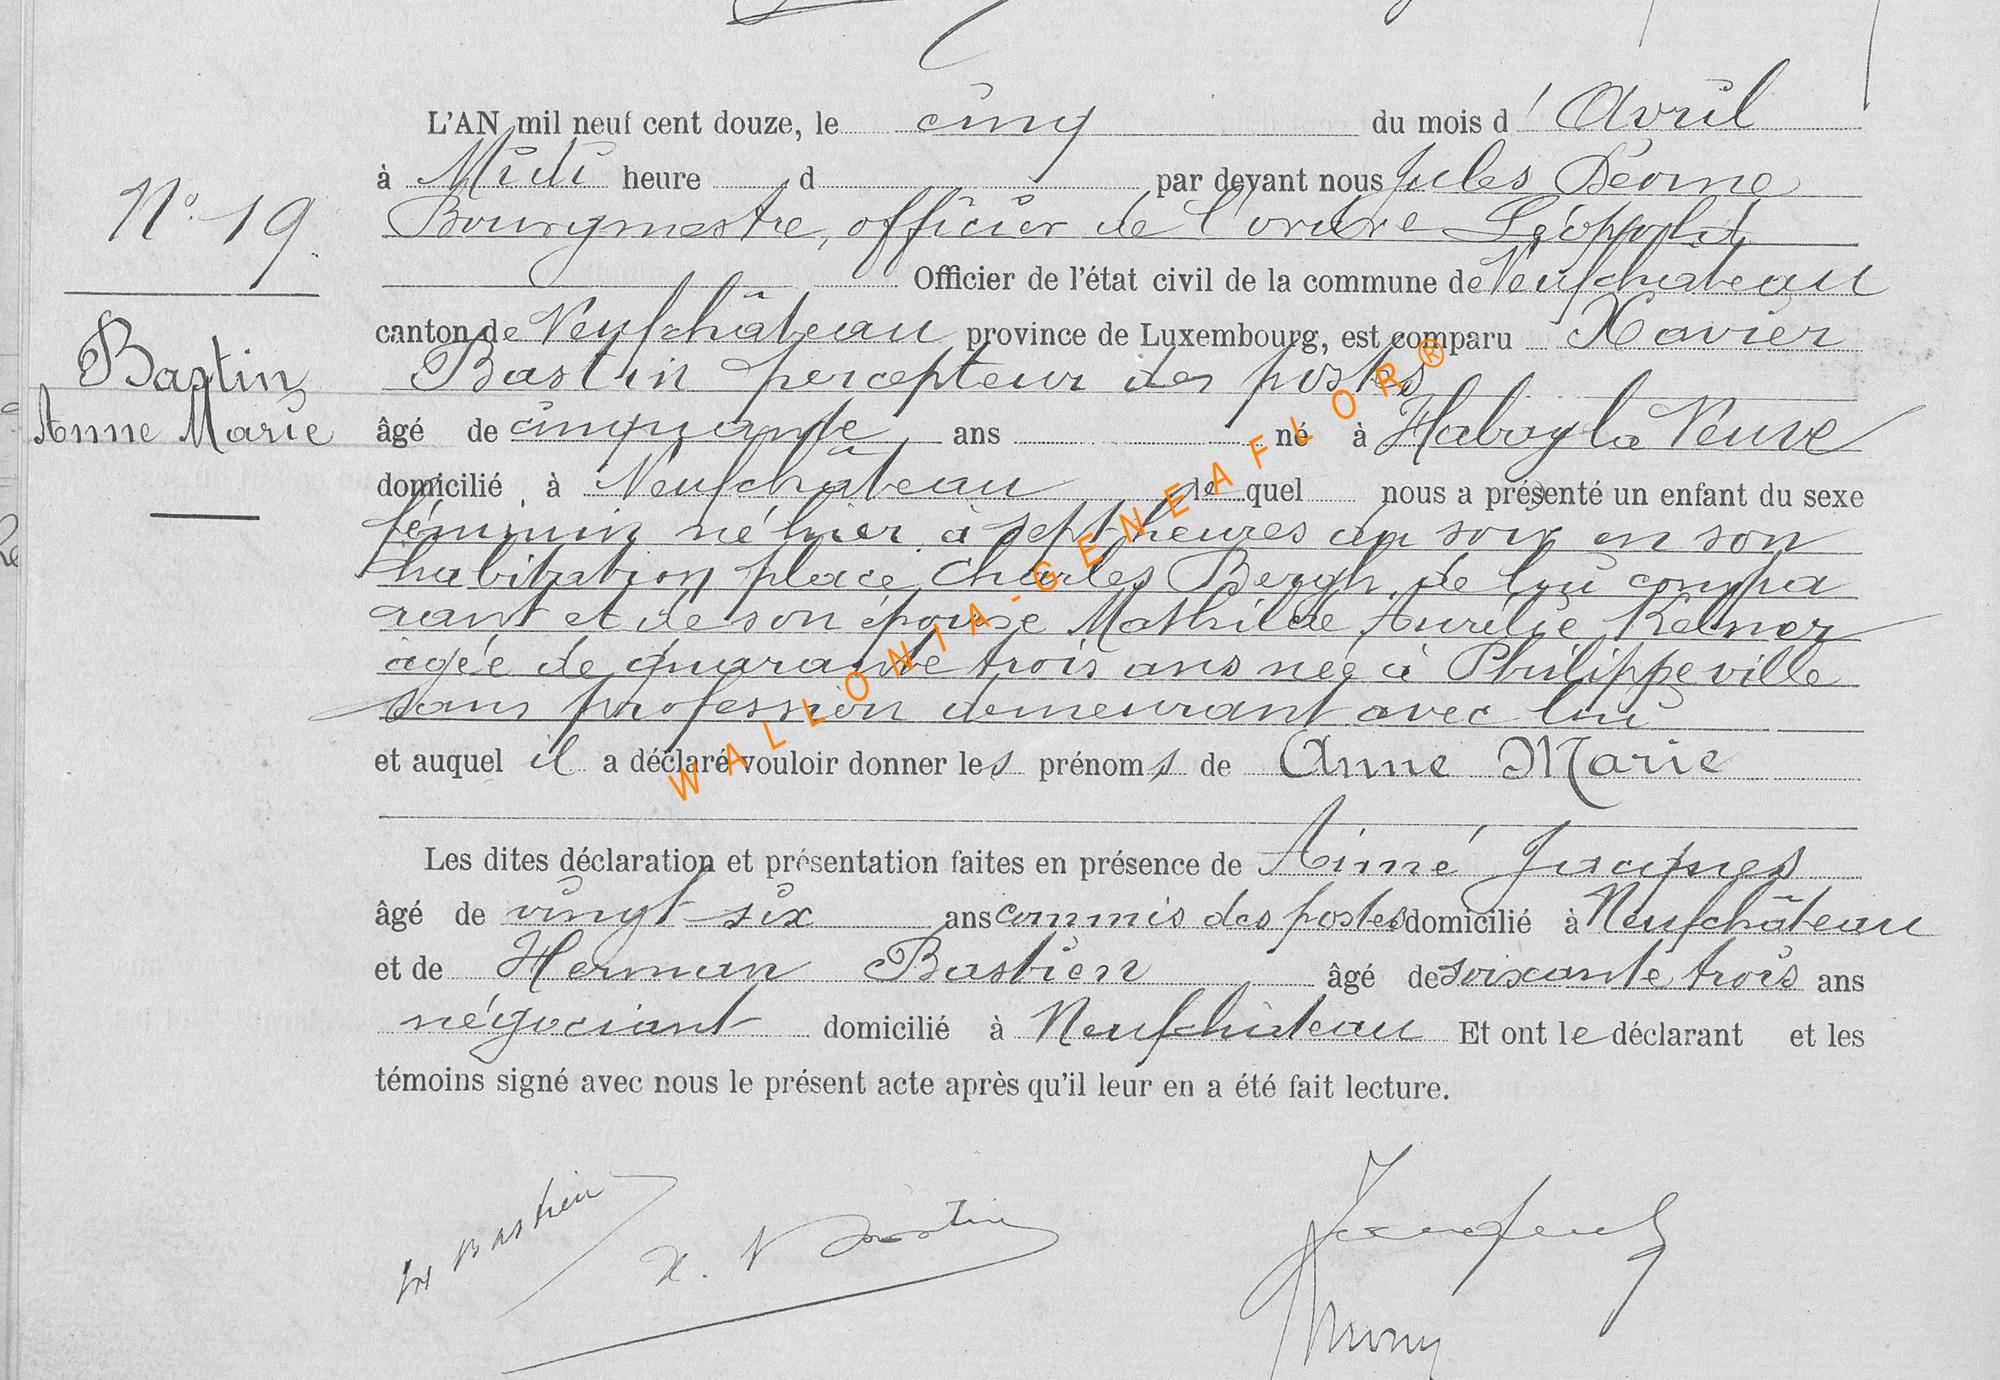 L'AN mil neuf cent douze, le cinq du mois d'Avril
à Midi heure d par devant nous Jules
Bourgmestre, officier de l'ordre Léopold
Officier de l'état civil de la commune de Neufchateau
N° 19.
canton de Neufchâteau province de Luxembourg, est comparu Xavier
Bastin percepteur des postes
Bastin
Anne Marie
âgé de cinquante ans né à Habay la Neuve
domicilié à Neufchâteau le quel nous a présenté un enfant du sexe
féminin né hier à sept heures du soir en son
habitation place Charles Bergh, de lui compa
rant et de son épouse Mathilde Aurélie
agée de quarante trois ans née à Philippeville
sans profession demeurant avec lui
et auquel il a déclaré vouloir donner les prénoms de Anne Marie
Les dites déclaration et présentation faites en présence de Aimé Jacques
âgé de vingt six ans commis des postes domicilié à Neufchâteau
et de Herman Bastien âgé de soixante trois ans
négociant domicilié à Neufchâteau Et ont le déclarant et les
témoins signé avec nous le présent acte après qu'il leur en a été fait lecture.
Bastien
X. Bastin
WALLONIA-GENEAFLOR®